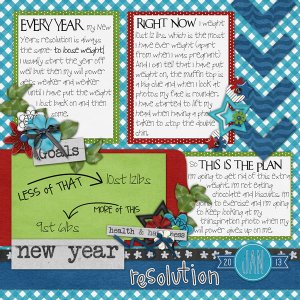 EVERY YEAR my New
Year's resolution is always
the same- to loose weight!
I usually start the year off
well but then my will power
gets weaker and weaker
until I have put the weight
I lost back on and then
some.
RIGHT NOW I weight
10st 12lbs, which is the most
I have ever weight (apart
from when I was pregnant)
And I can tell that I have
put weight on, the muffin top is
a big clue and when I look at
photos my face is rounder. I
have started to lift my
head when having a photo
taken to stop the double
chin.
Goals
LESS OF THAT
10st 12lbs
MORE OF THIS
9st 6lbs
health & happiness
So THIS IS THE PLAN
I'm going to get rid of this extra
weight, I'm not eating
chocolate and biscuits, I'm
going to exercise and I'm going
to keep looking at my
photo when my
will power goes
new year
resolution
20 JAN 13